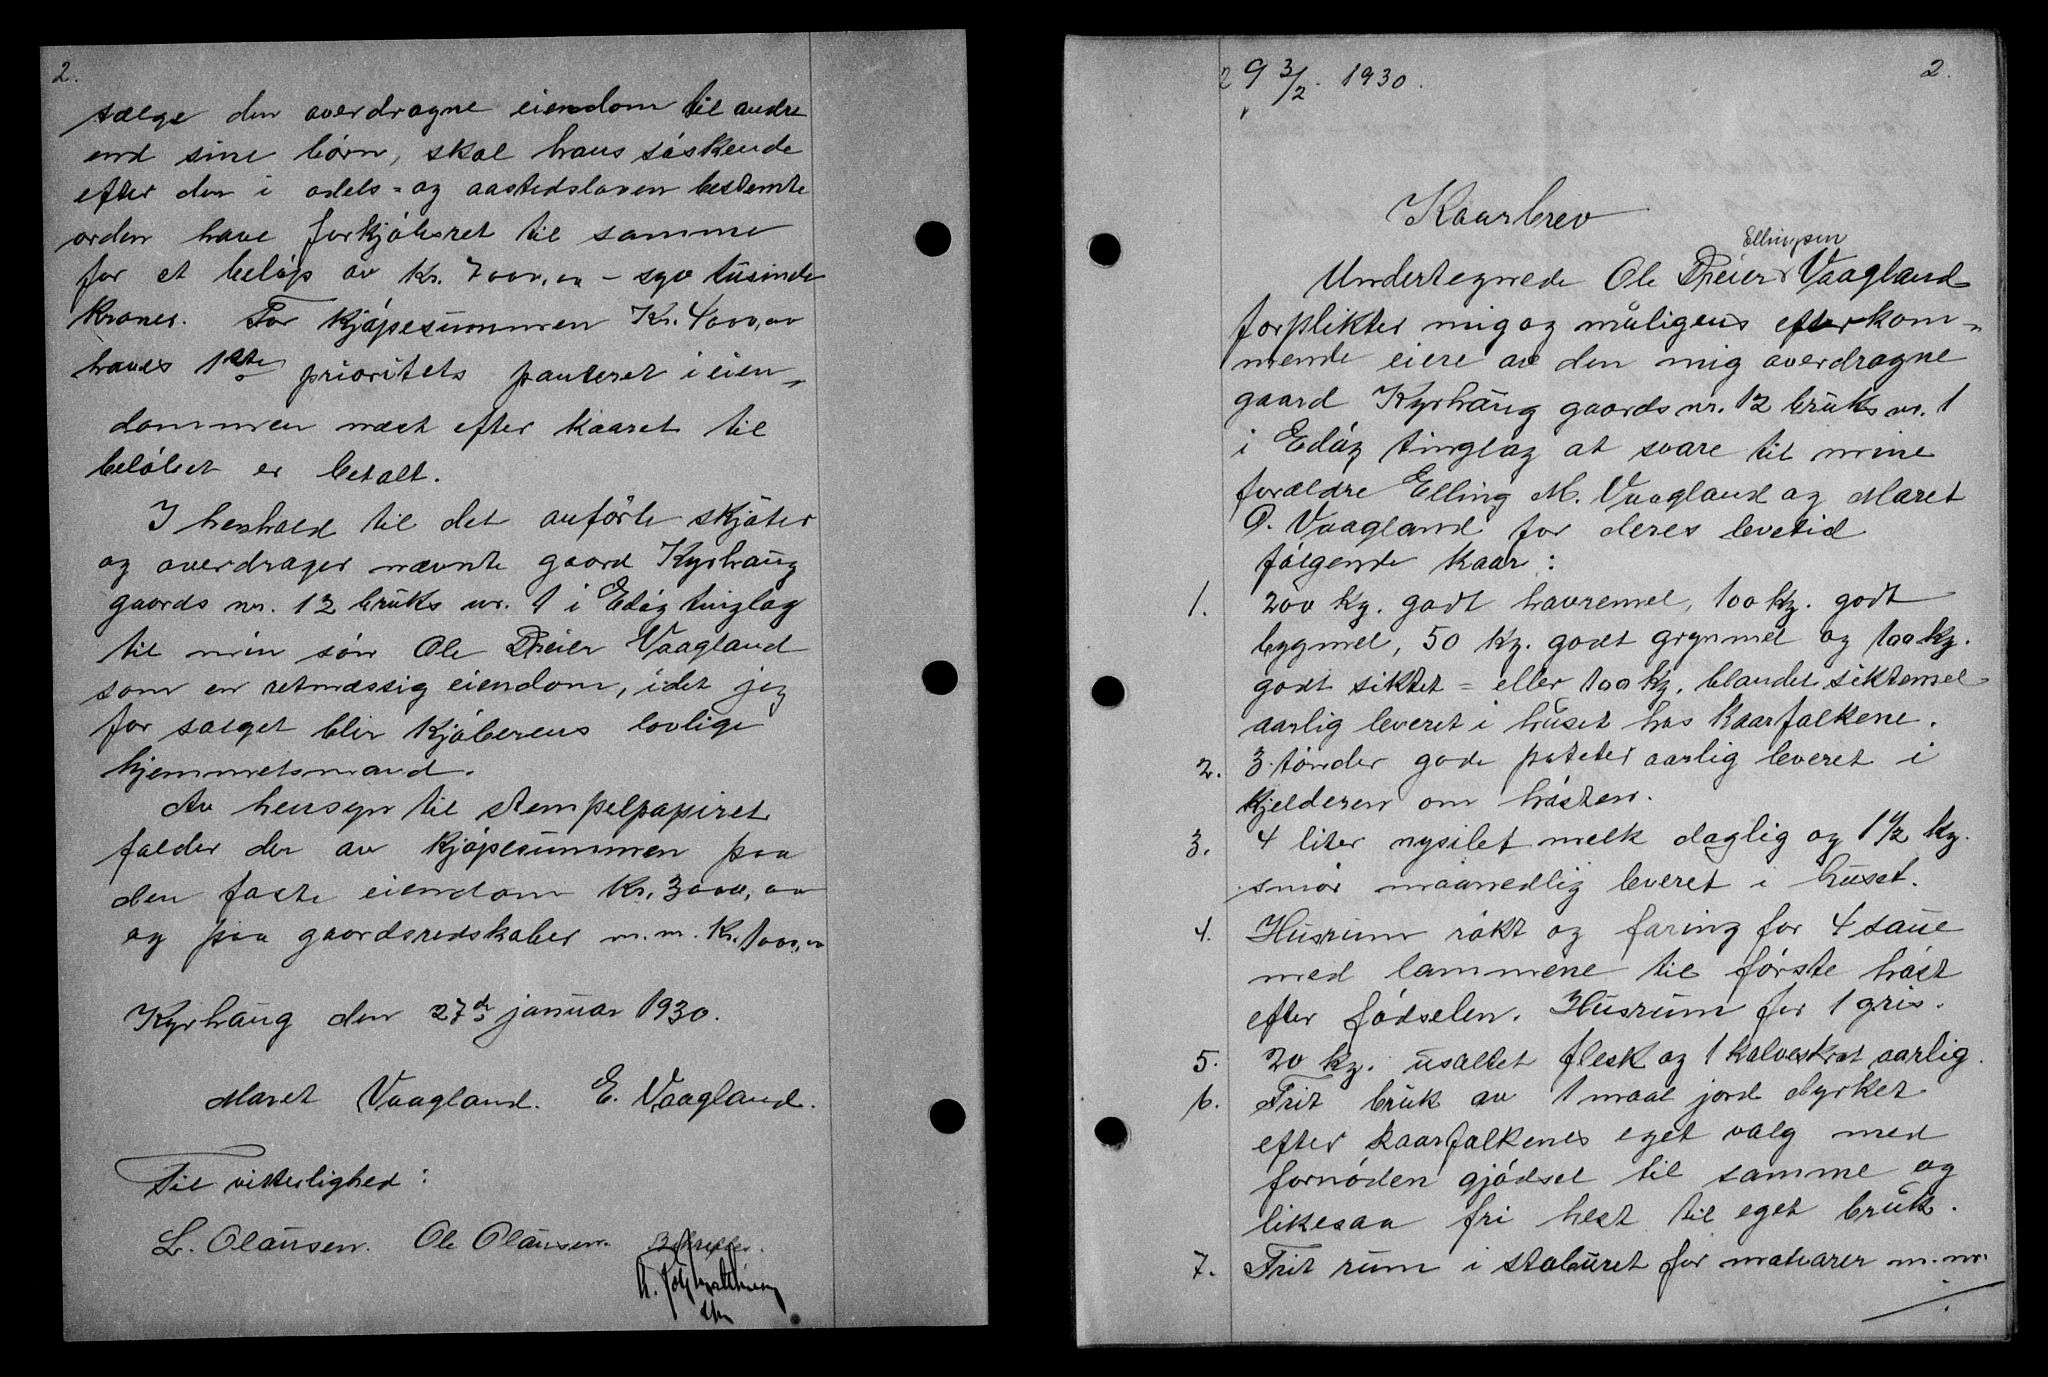 2.
sælge den overdragne eiendom til andre
end sine börn, skal hans söskende
efter den i odels- og aastedsloven bestemte
orden have forkjöbsret til samme
for et belöp av Kr. 7000,00 - syv tusinde
kroner. For kjöpesummen Kr. 4000,00
haves 1ste prioritets panteret i eien-
dommen næst efter kaaret til
belöbet er betalt.
I henhold til det anförte skjöter
og overdrager nævnte gaard Kyrhaug
gaards nr. 12 bruks nr. 1 i Edöy tinglag
til min sön Ole Dreier Vaagland
som en retmæssig eiendom, idet jeg
for salget blir kjöberens lovlige
hjemmelsmand.
Av hensyn til stempelpapiret
falder der av kjöpesummen paa
den faste eiendom Kr. 3000,00
og paa gaardsredskaber m.m. Kr. 1000,00
Kyrhaug den 27de januar 1930.
Maret Vaagland. E. Vaagland.
Til vitterlighed:
L. Olausen. Ole Olausen. Bekræftes.
29 3/2. 1930. 2.
Kaarbrev
Ellingsen
Undertegnede Ole Dreier Vaagland
forplikter mig og muligens efterkom-
mende eiere av den mig overdragne
gaard Kyrhaug gaards nr. 12 bruks nr. 1
i Edöy tinglag at svare til mine
forældre Elling M. Vaagland og Maret
O. Vaagland for deres levetid
fölgende kaar:
1. 200 kg. godt havremel, 100 kg. godt
bygmel, 50 kg. godt grynmel og 100 kg.
godt siktet- eller 100 kg. blandet siktemel
aarlig leveret i huset hos kaarfolkene.
2. 3 tönder gode poteter aarlig leveret i
kjelderen om hösten.
3. 4 liter nysilet melk daglig og 1 1/2 kg.
smör maanedlig leveret i huset.
4. Husrum rökt og foring for 4 saue
med lammene til förste höst
efter födselen. Husrum for 1 gris.
5. 20 kg. usaltet flesk og 1 kalveskrot aarlig.
6. Frit bruk av 1 maal jord dyrket
efter kaarfolkenes eget valg med
fornöden gjödsel til samme og
likesaa fri hest til eget bruk.
7. Frit rum i staburet for matvarer m.m.